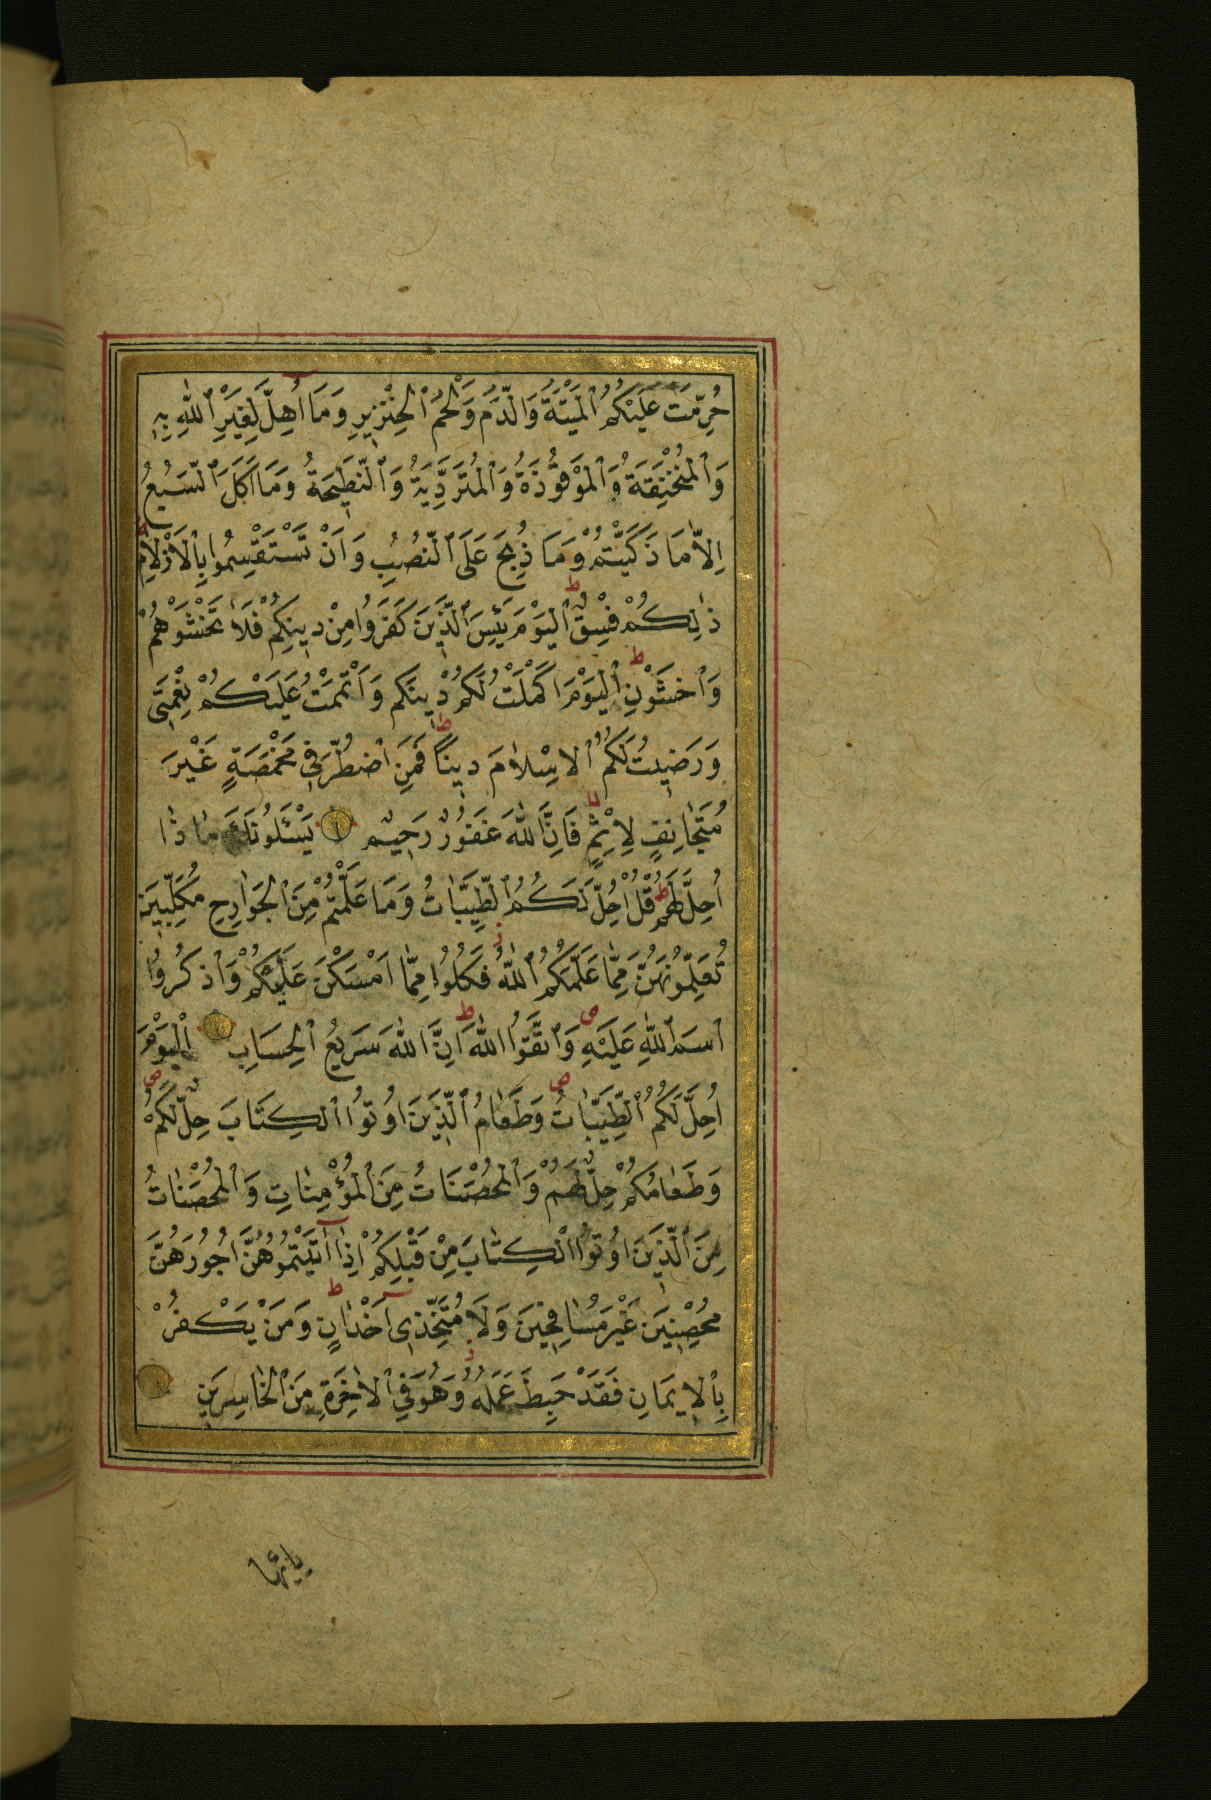 حُرِّمَتْ عَلَيْكُمُ ٱلْمَيْتَةُ وَالدَّمُ وَلَحْمُ ٱلْخِنْزِيرِ وَمَا أُهِلَّ لِغَيْرِ ٱللّٰهِ بِهِ
وَٱلْمُنْخَنِقَةُ وَٱلْمَوْقُوذَةُ وَٱلْمُتَرَدِّيَةُ وَٱلنَّطِيحَةُ وَمَا اَكَلَ ٱلسَّبُعُ
اِلَّا مَا ذَكَّيْتُمْ وَمَا ذُبِحَ عَلَى ٱلنُّصُبِ وَاَنْ تَسْتَقْسِمُوا بِٱلْاَزْلَامِ ط
ذٰلِكُمْ فِسْقٌ ط ٱلْيَوْمَ يَئِسَ ٱلَّذِينَ كَفَرُوا مِنْ دِينِكُمْ فَلَا تَخْشَوْهُمْ
وَٱخْشَوْنِ ط ٱلْيَوْمَ اَكْمَلْتُ لَكُمْ دِينَكُم وَاَتْمَمْتُ عَلَيْكُمْ نِعْمَتِى
وَرَضِيتُ لَكُمُ ٱلْاِسْلَامَ دِينًا ط فَمَنِ ٱضْطُرَّ فِي مَخْمَصَةٍ غَيْرَ
مُتَجَانِفٍ لِاِثْمٍ فَاِنَّ ٱللّٰهَ غَفُورٌ رَحِيمٌ يَسْئَلُونَكَ مَا ذَا
اُحِلَّ لَهُمْ ط قُلْ اُحِلَّ لَكُمُ ٱلطَّيِّبَاتُ وَمَا عَلَّمْتُمْ مِنَ ٱلْجَوَارِحِ مُكَلِّبِينَ
تُعَلِّمُونَهُنَّ مِمَّا عَلَّمَكُمُ ٱللّٰهُ ز فَكُلُوا مِمَّا اَمْسَكْنَ عَلَيْكُمْ وَٱذْكُرُوا
ٱسْمَ ٱللّٰهِ عَلَيْهِ ص وَٱتَّقُوا ٱللّٰهَ ط اِنَّ ٱللّٰهَ سَرِيعُ ٱلْحِسَابِ ٱلْيَوْمَ
اُحِلَّ لَكُمُ ٱلطَّيِّبَاتُ ص وَطَعَامُ ٱلَّذِينَ اُوتُوا ٱلْكِتَابَ حِلٌّ لَكُمْ ص
وَطَعَامُكُمْ حِلٌّ لَهُمْ وَٱلْمُحْصَنَاتُ مِنَ ٱلْمُؤْمِنَاتِ وَٱلْمُحْصَنَاتُ
مِنَ ٱلَّذِينَ اُوتُوا ٱلْكِتَابَ مِنْ قَبْلِكُمْ اِذَا آتَيْتُمُوهُنَّ اُجُورَهُنَّ
مُحْصِنِينَ غَيْرَ مُسَافِحِينَ وَلَا مُتَّخِذِى اَخْدَانٍ ط وَمَنْ يَكْفُرْ
بِٱلْاِيمَانِ فَقَدْ حَبِطَ عَمَلُهُ ز وَهُوَ فِي ٱلْاٰخِرَةِ مِنَ ٱلْخَاسِرِينَ
يا ايها